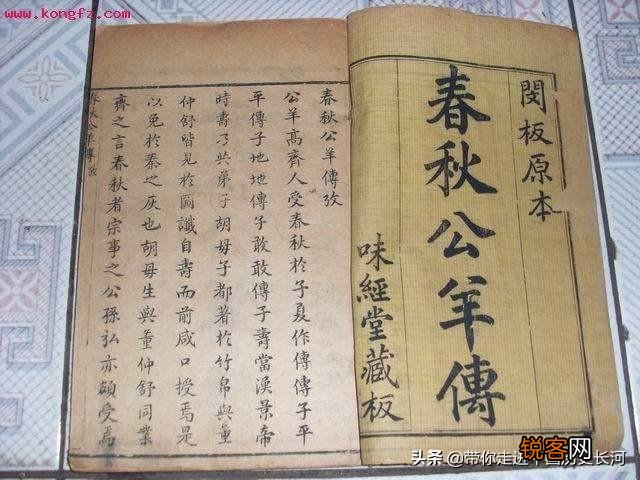 www.kongfz.com
閔板原本
春秋公羊傳
味經堂藏板
春秋公羊傳攷
公羊高齊人受春秋於子夏作傳傳子平
平傳子地地傳子敢敢傳子壽當漢景帝
時壽乃共弟子胡毋子都著於竹帛與董
仲舒皆見於圖讖自壽而前咸口授焉是
以免於秦之灰也胡毋生與董仲舒同業
齊之言春秋者宗事之公孫弘亦頗受焉
春秋公羊傳攷
头条 @带你走进中国历史长河
锐客网